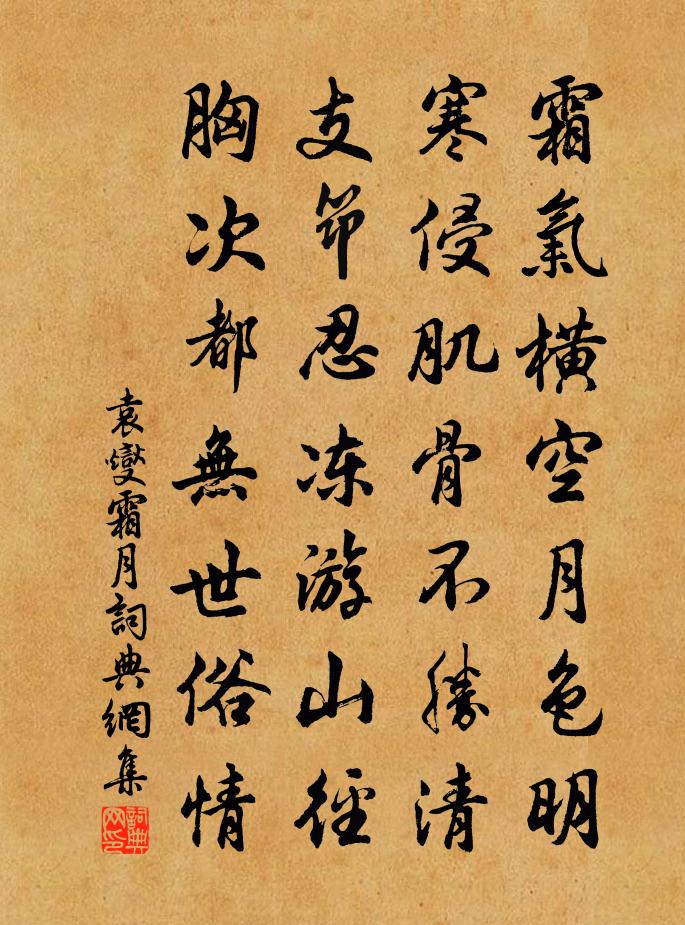 霜氣橫空月色明
寒侵肌骨不勝清
支笻忍冻游山徑
胸次都無世俗情
袁燮霜月詞典網集
詞典网印